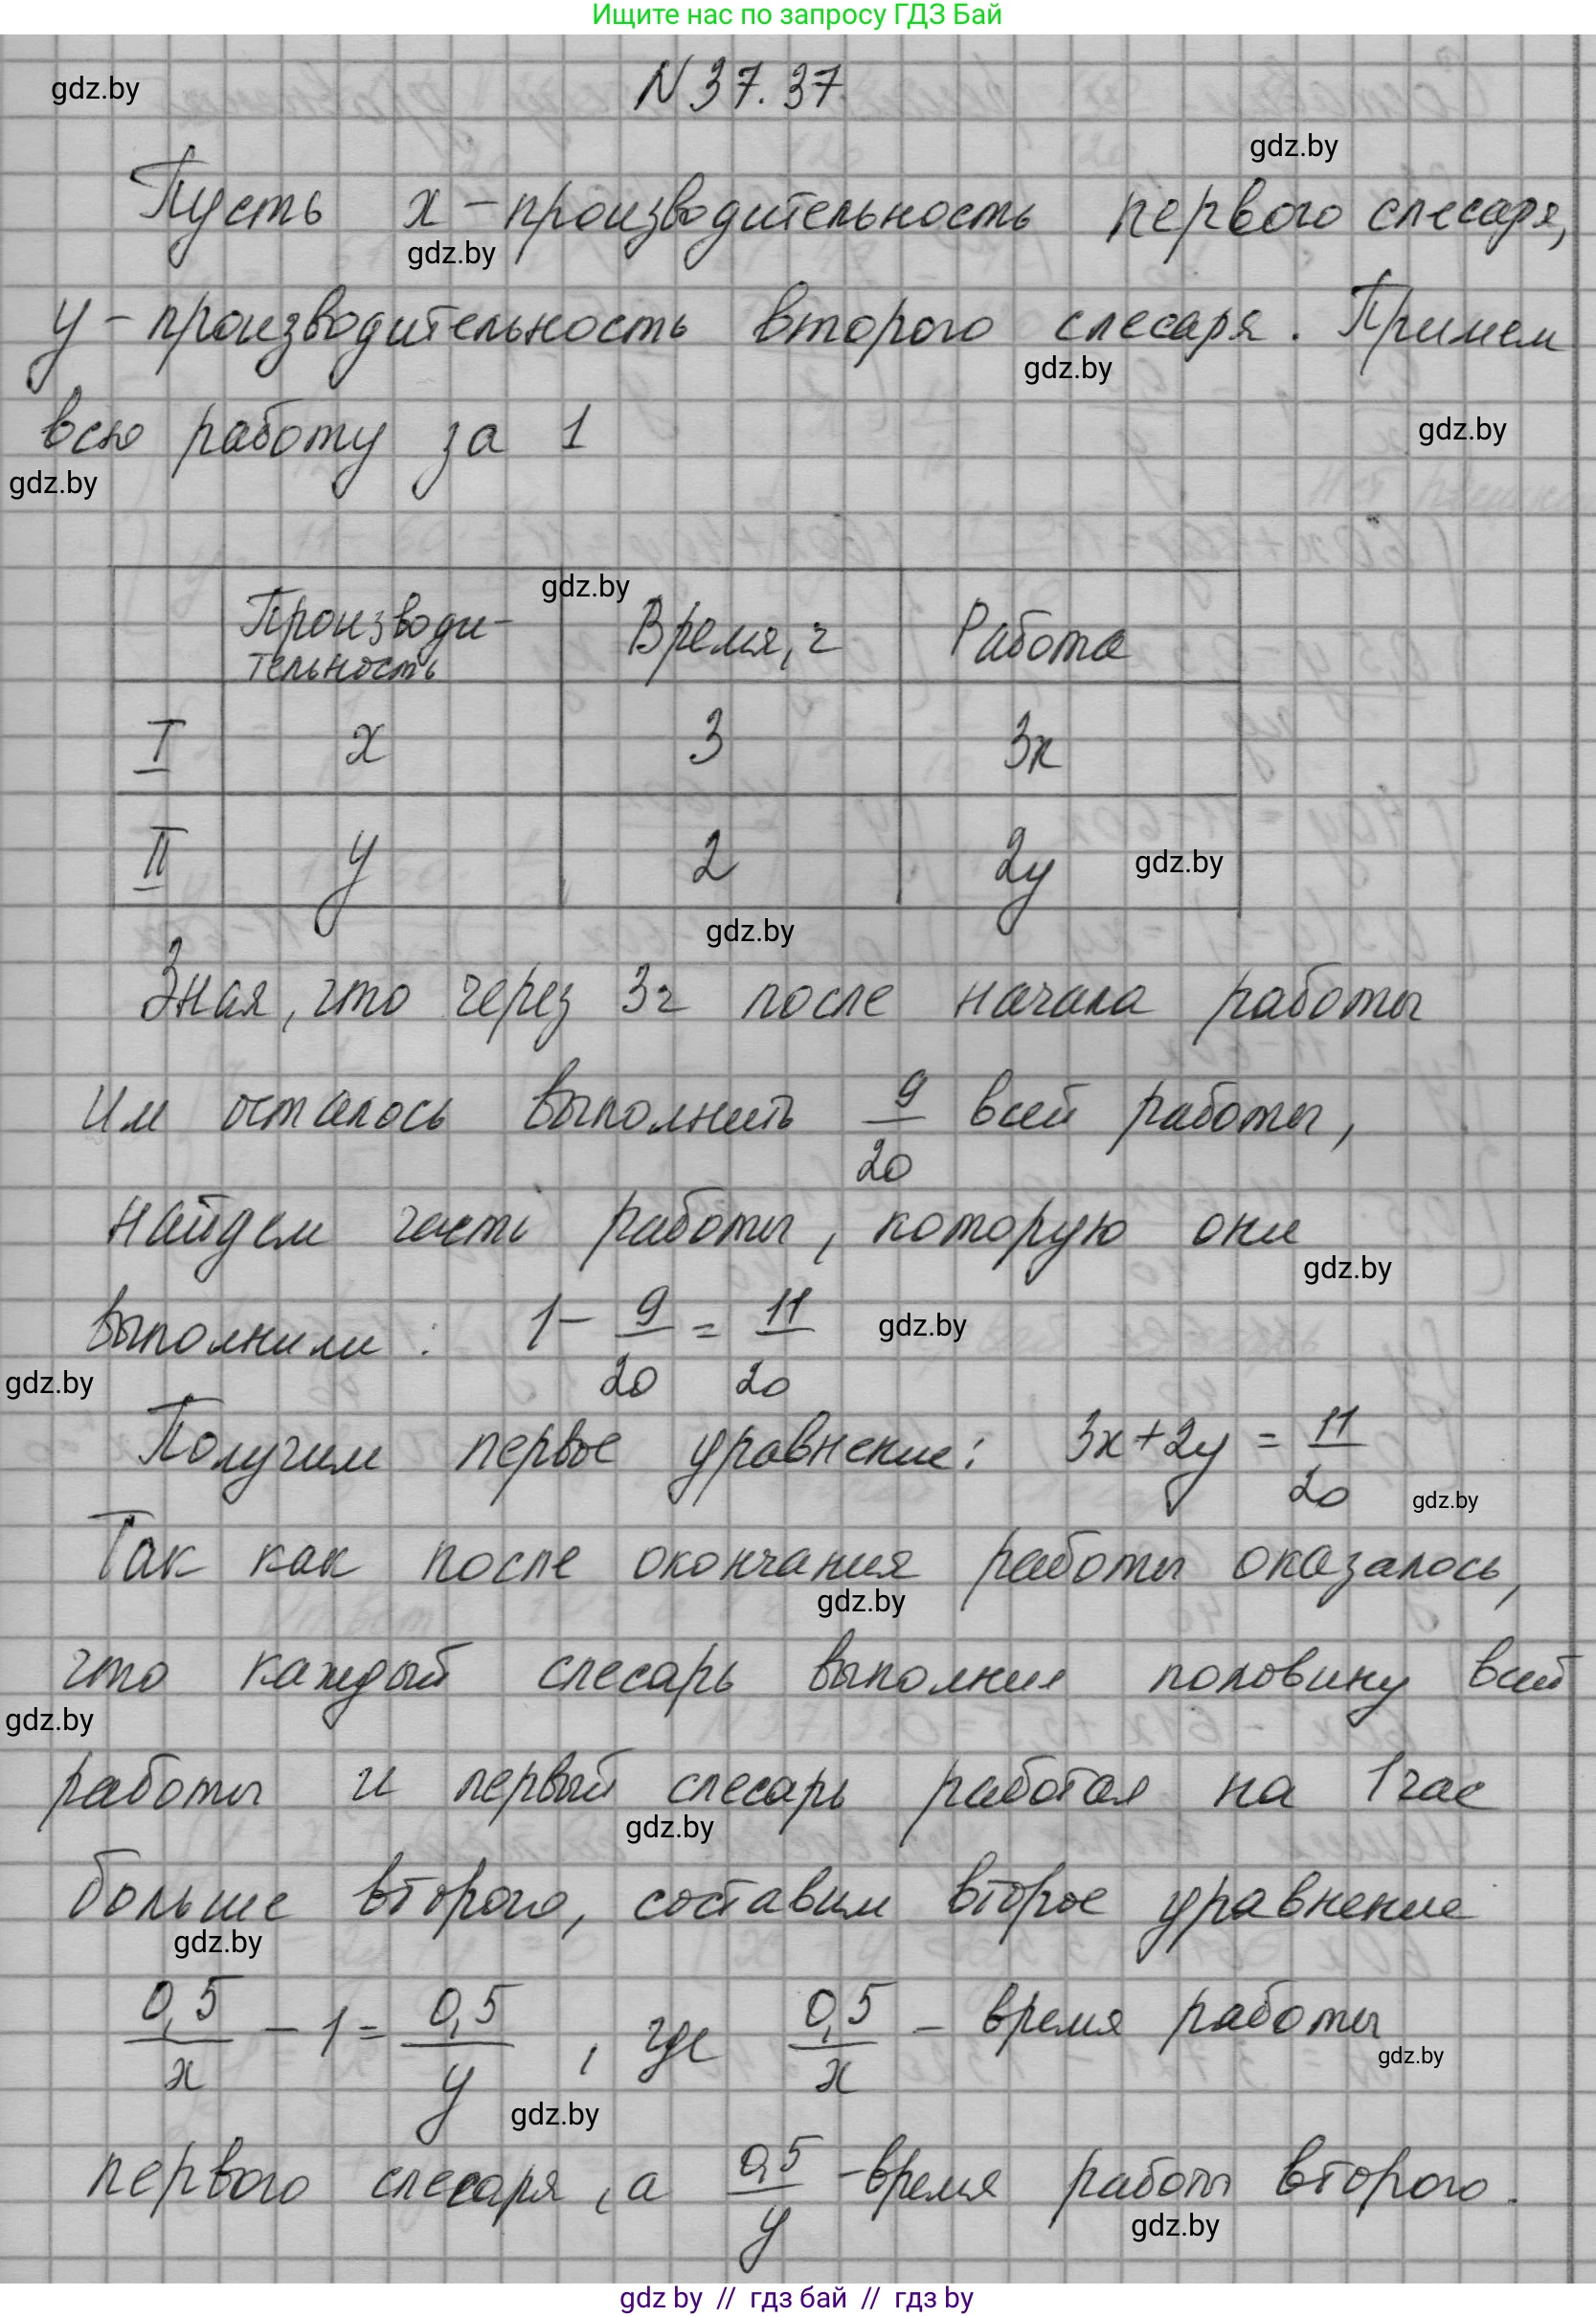 Ищите нас по запросу ГДЗ Бай
gdz.by
N 37.37
gdz.by
Пусть x – производительность первого слесаря,
gdz.by
y – производительность второго слесаря. Примем
gdz.by
всю работу за 1
gdz.by
gdz.by
gdz.by
Производи-тельность Время, ч Работа
I x 3 3x
II y 2 2y
gdz.by
gdz.by
Зная, что через 3ч после начала работы
им осталось выполнить 9/20 всей работы,
найдем часть работы, которую они
gdz.by
выполнили: 1 – 9/20 = 11/20
gdz.by
gdz.by
Получим первое уравнение: 3x + 2y = 11/20
gdz.by
Так как после окончания работы оказалось,
gdz.by
что каждый слесарь выполнил половину всей
gdz.by
работы и первый слесарь работал на 1 час
gdz.by
больше второго, составим второе уравнение
gdz.by
0,5/x – 1 = 0,5/y , где 0,5/x – время работы
gdz.by
gdz.by
первого слесаря, а 0,5/y – время работы второго.
gdz.by
gdz by // гдз бай // гдз by